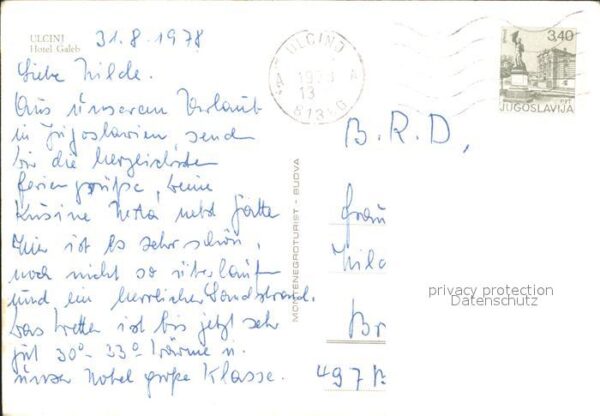 ULCINJ
Hotel Galeb
31.8.1978
Liebe Hilde.
Aus unserem Urlaub
in Jugoslawien, send
dir die herzlichsten
Feriengrüße, Deine
Kusine nebst Gatte
Hier ist es sehr schön,
noch nicht so überlaufen
und ein herrlicher Sandstrand.
Das Wetter ist bis jetzt sehr
gut 30°-33° Wärme u.
unser Hotel große Klasse.
MONTENEGROTURIST - BUDVA
ULCINJ
1978
13
3,40
PTT
JUGOSLAVIJA
B.R.D,
Frau
Hild
privacy protection
Datenschutz
Br
497